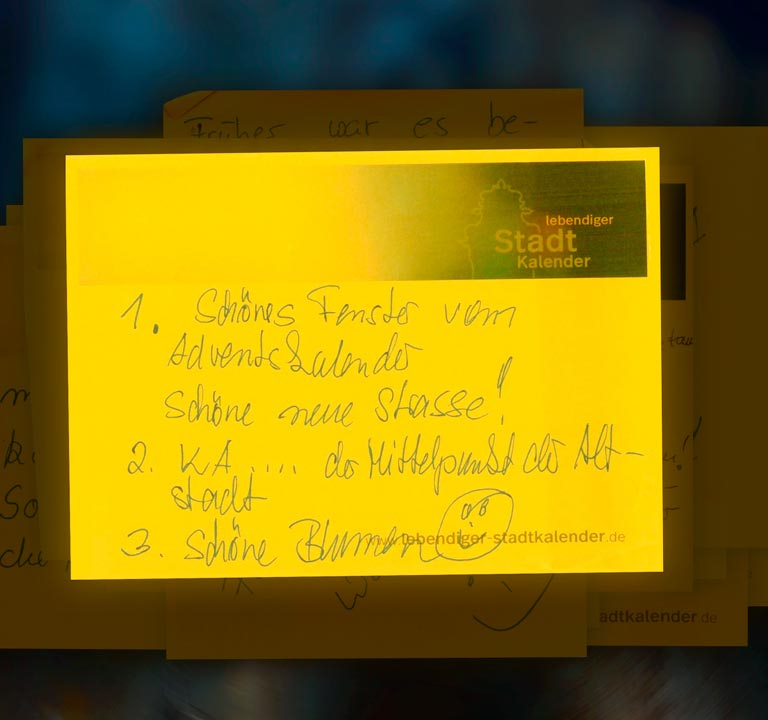 Früher war es be-
lebendiger
Stadt
Kalender
1. Schönes Fenster vom
Adventskalender
schöne neue Strasse!
2. KA .... der Mittelpunkt der Alt-
stadt
3. Schöne Blumen
www.lebendiger-stadtkalender.de
So
adtkalender.de